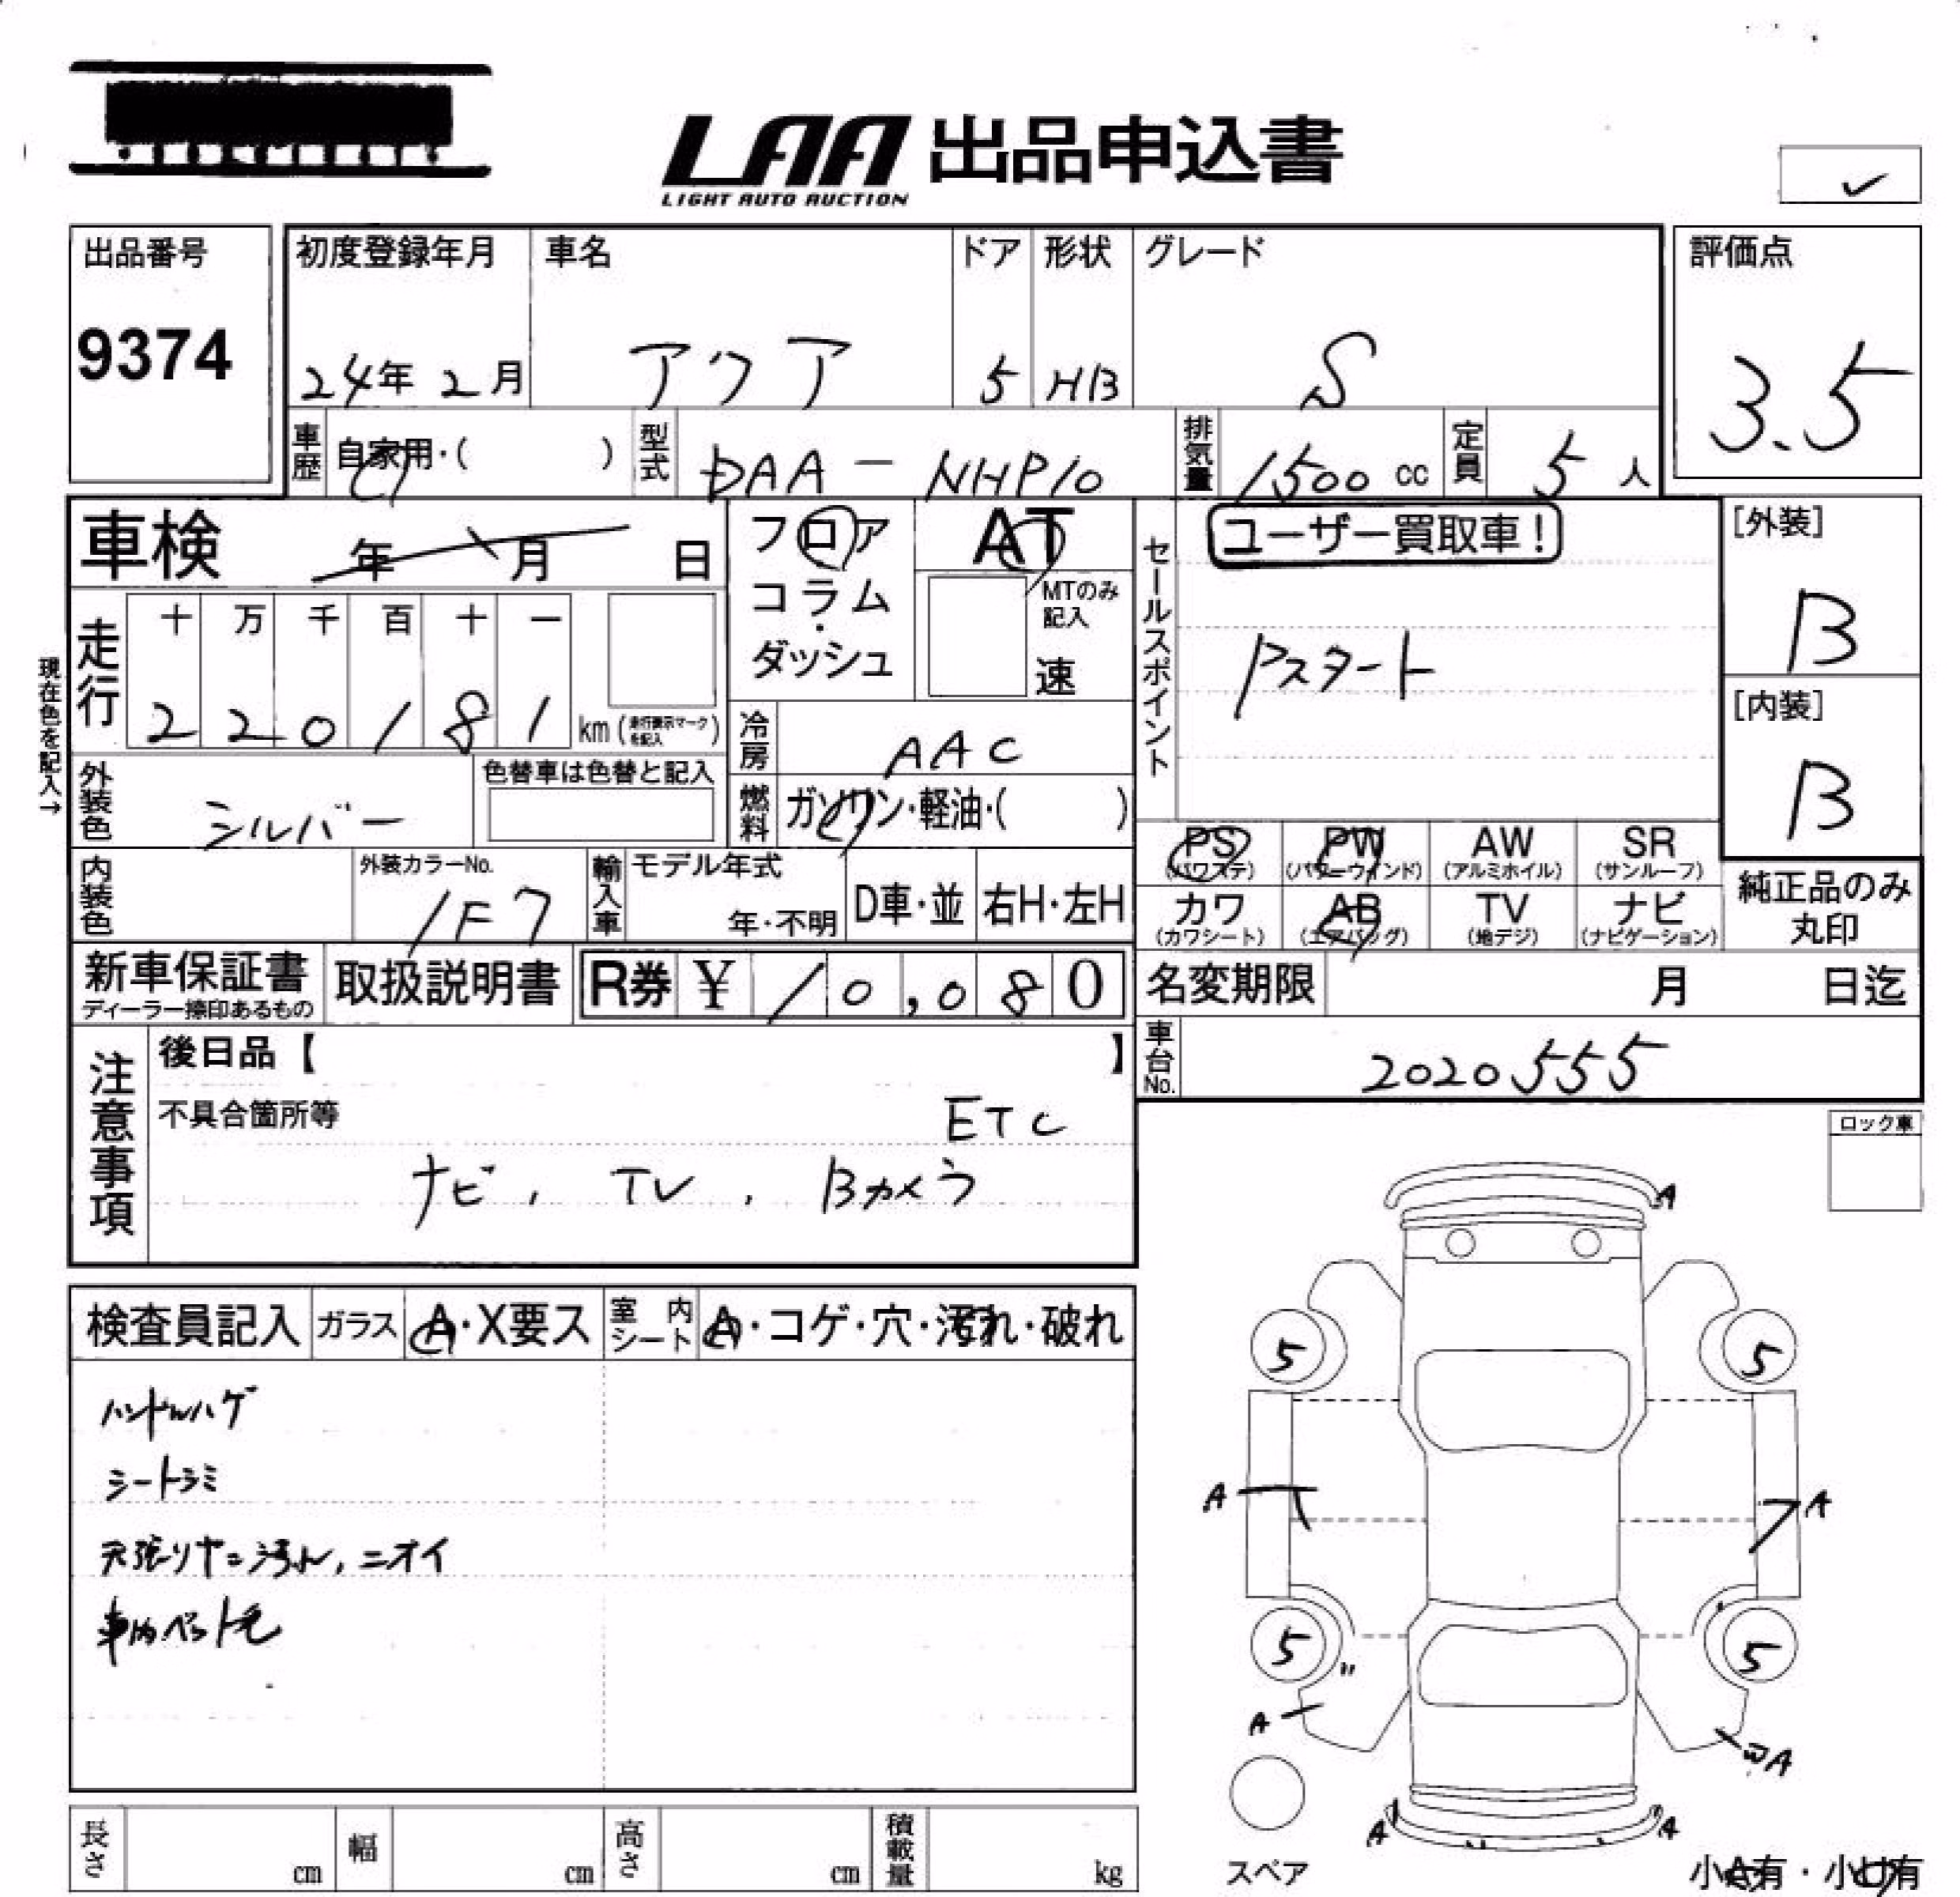 LAA 出品申込書
LIGHT AUTO AUCTION
出品番号
9374
初度登録年月
24年 2月
車名
アクア
ドア
5
形状
HB
グレード
S
評価点
3.5
車歴
自家用・( )
型式
DAA-NHP10
排気量
1500 cc
定員
5人
車検 年 月 日
フロア
コラム
・
ダッシュ
AT
MTのみ
記入
速
セールスポイント
ユーザー買取車!
Pスタート
[外装]
B
[内装]
B
現在色を記入→
走行
十 万 千 百 十 一
2 2 0 1 8 1
km (走行表示マークを記入)
冷房
AAC
燃料
ガソリン・軽油・( )
外装色
シルバー
色替車は色替と記入
内装色
外装カラーNo.
1F7
輸入車
モデル年式
年・不明
D車・並
右H・左H
PS
(パワステ)
PW
(パワーウインド)
AW
(アルミホイル)
SR
(サンルーフ)
カワ
(カワシート)
AB
(エアバッグ)
TV
(地デジ)
ナビ
(ナビゲーション)
純正品のみ
丸印
新車保証書
ディーラー捺印あるもの
取扱説明書
R券 ¥ 10,080
名変期限 月 日迄
車台No.
2020555
注意事項
後日品【 】
不具合箇所等
ETC
ナビ, TV, Bカメラ
ロック車
検査員記入
ガラス
A・X要ス
室内シート
A・コゲ・穴・汚れ・破れ
ハンドルハゲ
シートシミ
天張りヤニ汚れ, ニオイ
車内ペット毛
A
5
5
A
A
5
5
A
WA
A
A
スペア
小A有・小U有
長さ
cm
幅
cm
高さ
cm
積載量
kg